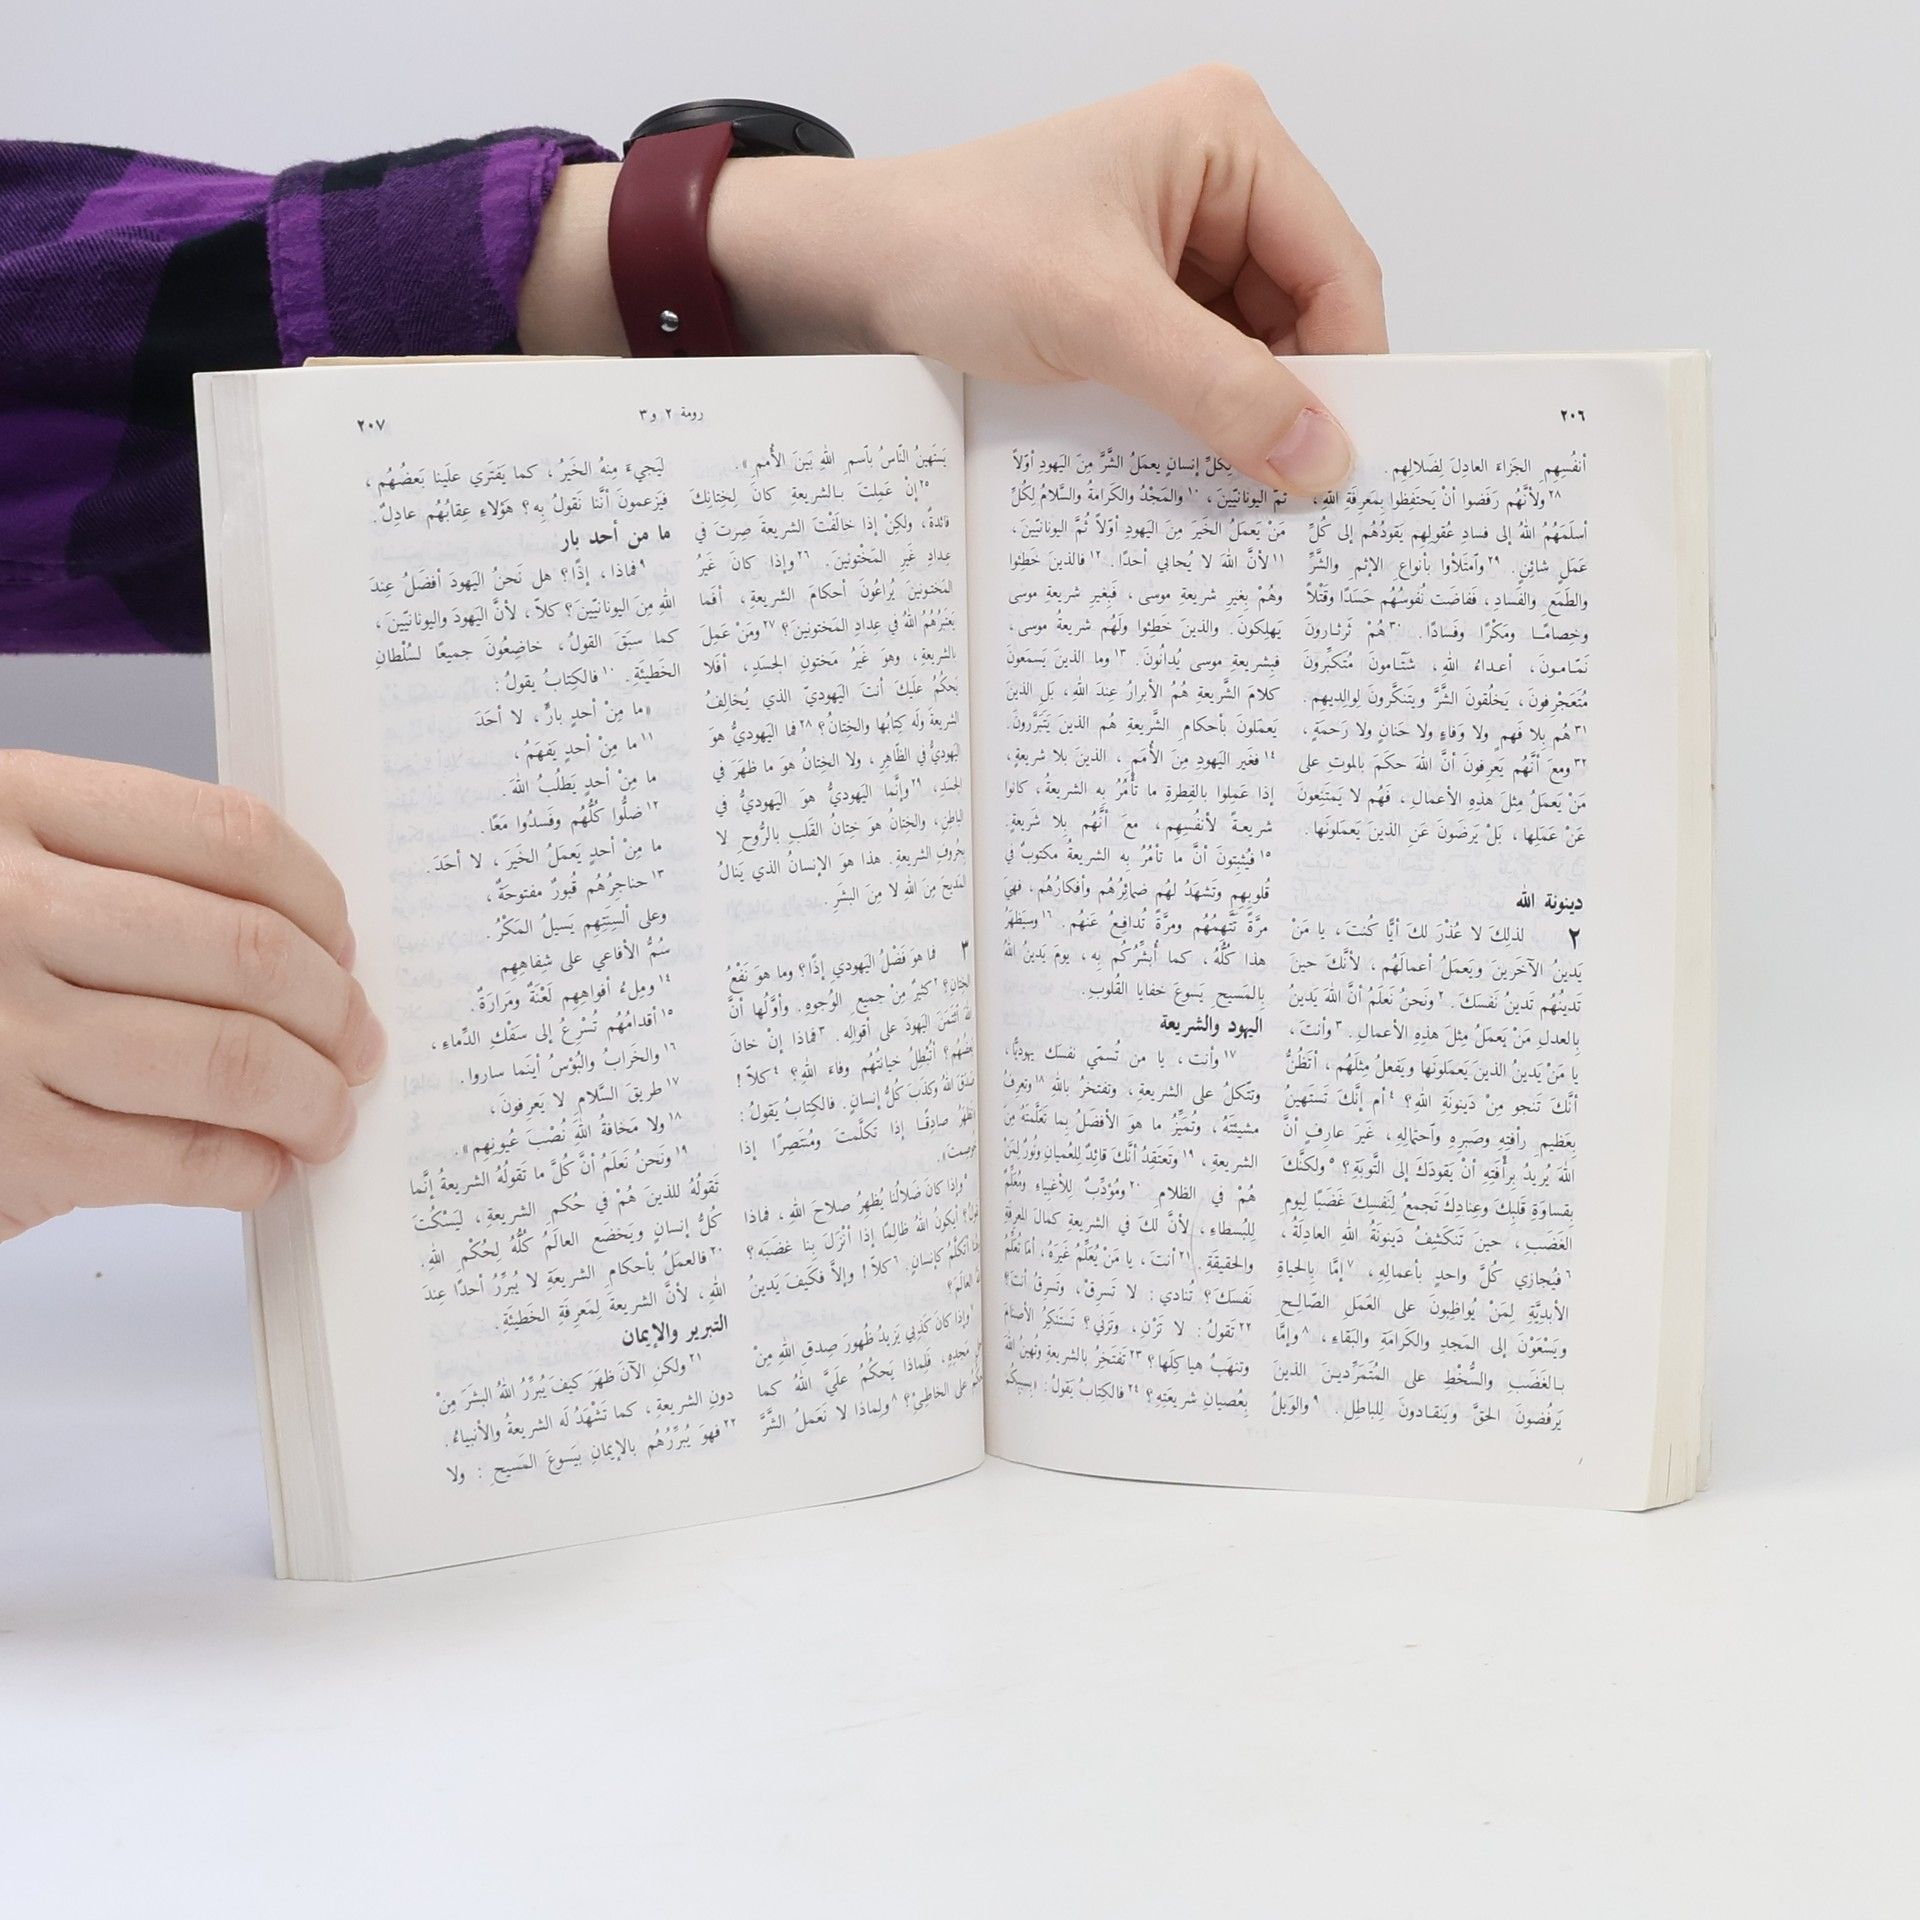 ٢٠٦
أنفُسِهِمِ الجَزاءَ العادِلَ لِضَلالِهِم.
٢٨ ولأنَّهُم رَفَضوا أنْ يَحتَفِظوا بِمَعرِفَةِ اللهِ،
أسلَمَهُمُ اللهُ إلى فسادِ عُقولِهِم يَقودُهُم إلى كُلِّ
عَمَلٍ شائِنٍ. ٢٩ وٱمتَلأوا بأنواعِ الإثمِ والشَّرِّ
والطَّمَعِ والفَسادِ، ففاضَت نُفوسُهُم حَسَدًا وقَتْلاً
وخِصامًا ومَكْرًا وفَسادًا. ٣٠ هُمْ ثَرثارونَ
نَمّامونَ، أعداءُ اللهِ، شَتّامونَ مُتَكبِّرونَ
مُتَعَجرِفونَ، يَخلُقونَ الشَّرَّ ويَتنكَّرونَ لوالِديهِم.
٣١ هُم بِلا فَهمٍ ولا وَفاءٍ ولا حَنانٍ ولا رَحمَةٍ،
٣٢ ومعَ أنَّهُم يَعرِفونَ أنَّ اللهَ حكَمَ بالموتِ على
مَنْ يَعمَلُ مِثلَ هذِهِ الأعمالِ، فَهُم لا يَمتَنِعونَ
عَنْ عَمَلِها، بَلْ يَرضَونَ عَنِ الذينَ يَعمَلونَها.
دينونة الله
٢ لذلِكَ لا عُذْرَ لكَ أيًّا كُنتَ، يا مَنْ
يَدينُ الآخَرينَ ويَعمَلُ أعمالَهُم، لأنَّكَ حينَ
تَدينُهُم تَدينُ نَفسَكَ. ٢ ونَحنُ نَعلَمُ أنَّ اللهَ يَدينُ
بِالعدلِ مَنْ يَعمَلُ مِثلَ هذِهِ الأعمالِ. ٣ وأنتَ،
يا مَنْ يَدينُ الذينَ يَعمَلونَها ويَفعلُ مِثلَهُم، أتَظُنُّ
أنَّكَ تَنجو مِنْ دَينونَةِ اللهِ؟ ٤ أم إنَّكَ تَستَهينُ
بِعَظيمِ رأفتِهِ وصَبرِهِ وٱحتِمالِهِ، غَيرَ عارِفٍ أنَّ
اللهَ يُريدُ بِرأفَتِهِ أنْ يَقودَكَ إلى التَّوبَةِ؟ ٥ ولكنَّكَ
بِقساوَةِ قلبِكَ وعِنادِكَ تَجمعُ لِنَفسِكَ غَضَبًا لِيومِ
الغَضَبِ، حينَ تَنكَشِفُ دَينونَةُ اللهِ العادِلَةُ،
٦ فيُجازي كُلَّ واحدٍ بأعمالِهِ، ٧ إمَّا بِالحياةِ
الأبديَّةِ لِمَنْ يُواظِبونَ على العَمَلِ الصّالِحِ
ويَسْعَوْنَ إلى المَجدِ والكَرامَةِ والبَقاءِ، ٨ وإمَّا
بـالغَضَبِ والسُّخْطِ على المُتَمَرِّدينَ الذينَ
يَرفُضونَ الحَقَّ ويَنقادونَ لِلباطِلِ. ٩ والوَيلُ
لِكُلِّ إنسانٍ يعمَلُ الشَّرَّ مِنَ اليَهودِ أوّلاً
ثمَّ اليونانيّينَ، ١٠ والمَجْدُ والكَرامةُ والسَّلامُ لِكُلِّ
مَنْ يَعمَلُ الخَيرَ مِنَ اليَهودِ أوّلاً ثُمَّ اليونانيّينَ،
١١ لأنَّ اللهَ لا يُحابي أحدًا. ١٢ فالذينَ خَطِئوا
وهُمْ بِغيرِ شريعةِ موسى، فَبِغيرِ شريعةِ موسى
يَهلِكونَ. والذينَ خَطِئوا ولَهُم شريعةُ موسى،
فبِشريعةِ موسى يُدانُونَ. ١٣ وما الذينَ يَسمَعونَ
كلامَ الشَّريعةِ هُمُ الأبرارُ عِندَ اللهِ، بَلِ الذينَ
يَعمَلونَ بأحكامِ الشَّريعةِ هُم الذينَ يَتَبَرَّرونَ.
١٤ فغَير اليَهودِ مِنَ الأُمَمِ، الذينَ بلا شريعةٍ،
إذا عَمِلوا بِالفِطرةِ ما تأْمُرُ بِه الشريعةُ، كانوا
شريعةً لأنفُسِهِم، معَ أنَّهُم بِلا شريعةٍ.
١٥ فيُثبِتونَ أنَّ ما تأمُرُ بِه الشريعةُ مكتوبٌ في
قُلوبِهِم وتَشهَدُ لهُم ضَمائِرُهُم وأفكارُهُم، فهِيَ
مرَّةً تَتَّهِمُهُم ومرَّةً تُدافِعُ عَنهُم. ١٦ وسيَظهَرُ
هذا كُلُّهُ، كما أُبشِّرُكُم بِه، يومَ يَدينُ اللهُ
بِالمَسيحِ يَسوعَ خفايا القُلوبِ.
اليهود والشريعة
١٧ وأنت، يا من تُسمّي نفسَك يهوديًّا،
وتتَّكلُ على الشريعةِ، وتفتخرُ باللهِ ١٨ وتَعرِفُ
مشيئتَهُ، وتُميِّزُ ما هوَ الأفضَلُ بِما تَعَلَّمتَهُ مِنَ
الشريعةِ، ١٩ وتَعتَقِدُ أنَّكَ قائِدٌ لِلعُميانِ ونُورٌ لِمَنْ
هُمْ في الظلامِ ٢٠ ومُؤدِّبٌ لِلأغبِياءِ ومُعَلِّمٌ
لِلبُسطاءِ، لأنَّ لكَ في الشريعةِ كمالَ المَعرِفةِ
والحقيقةِ. ٢١ أنتَ، يا مَنْ يُعَلِّمُ غَيرَهُ، أما تُعَلِّمُ
نَفسَكَ؟ تُنادي: لا تَسرِقْ، وتَسرِقُ أنتَ؟
٢٢ تَقولُ: لا تَزْنِ، وتَزني؟ تَستَنكِرُ الأصنامَ
وتنهَبُ هياكِلَها؟ ٢٣ تَفتَخِرُ بالشريعةِ وتُهينُ اللهَ
بِعِصيانِ شريعَتِهِ؟ ٢٤ فالكِتابُ يَقولُ: «بسببِكُم
رومة ٢ و ٣
٢٠٧
يَستَهينُ النّاسُ بِٱسمِ اللهِ بَينَ الأُممِ».
٢٥ إنْ عَمِلتَ بـالشريعةِ كانَ لِختانِكَ
فائدةٌ، ولكِنْ إذا خالَفْتَ الشريعةَ صِرتَ في
عِدادِ غَيرِ المَختونينَ. ٢٦ وإذا كانَ غَيرُ
المَختونينَ يُراعُونَ أحكامَ الشريعةِ، أفَما
يَعتَبِرُهُمُ اللهُ في عِدادِ المَختونينَ؟ ٢٧ ومَنْ عَمِلَ
بالشريعةِ، وهوَ غَيرُ مَختونِ الجسَدِ، أفَلا
يَحكُمُ علَيكَ أنتَ اليَهوديّ الذي يُخالِفُ
الشريعةَ ولَه كِتابُها والخِتانُ؟ ٢٨ فما اليَهوديُّ هوَ
اليَهوديُّ في الظّاهِرِ، ولا الخِتانُ هوَ ما ظهَرَ في
الجسَدِ، ٢٩ وإنَّما اليَهوديُّ هوَ اليَهوديُّ في
الباطِنِ، والخِتانُ هوَ خِتانُ القَلبِ بِالرُّوحِ لا
بِحُروفِ الشريعةِ. هذا هوَ الإنسانُ الذي يَنالُ
المَديحَ مِنَ اللهِ لا مِنَ البشَرِ.
٣ فما هوَ فَضْلُ اليَهودي إذًا؟ وما هوَ نَفْعُ
الخِتانِ؟ ٢ كثيرٌ مِنْ جميعِ الوُجوهِ. وأوَّلُها أنَّ
اللهَ ٱئتَمَنَ اليَهودَ على أقوالِه. ٣ فماذا إنْ خانَ
بَعضُهُم؟ أتُبطِلُ خيانَتُهُم وفاءَ اللهِ؟ ٤ كلاَّ!
صَدَقَ اللهُ وكذَبَ كُلُّ إنسانٍ. فالكِتابُ يَقولُ:
صادِقًـا إذا تَكلَّمتَ ومُنتَصِرًا إذا
٥ وإذا كانَ ضَلالُنا يُظهِرُ صلاحَ اللهِ، فماذا
أيكونُ اللهُ ظالِمًا إذا أنْزَلَ بِنا غضَبَه؟
أتكلَّمُ كإنسانٍ. ٦ كلاَّ! وإلاَّ فكَيفَ يَدينُ
العالَمَ؟
وإذا كان كَذِبي يَزيدُ ظُهورَ صِدقِ اللهِ مِنْ
مَجدِهِ، فلِماذا يَحكُمُ علَيَّ اللهُ كما
على الخاطِئِ؟ ٨ ولِماذا لا نَعمَلُ الشَّرَّ
لِيَجيءَ مِنهُ الخَيرُ، كما يَفتَري علَينا بَعضُهُم،
فيَزعمونَ أنَّنا نَقولُ بِه؟ هَؤلاءِ عِقابُهُم عادِلٌ.
ما من أحد بار
٩ فماذا، إذًا؟ هل نَحنُ اليَهودَ أفضَلُ عِندَ
اللهِ مِنَ اليونانيّينَ؟ كلاَّ، لأنَّ اليَهودَ واليونانيّينَ،
كما سبَقَ القولُ، خاضِعُونَ جميعًا لسُلْطانِ
الخَطيئَةِ. ١٠ فالكِتابُ يقولُ:
«ما مِنْ أحدٍ بارٌّ، لا أحَدَ
١١ ما مِنْ أحدٍ يَفهَمُ،
ما مِنْ أحدٍ يَطلُبُ اللهَ.
١٢ ضَلُّوا كُلُّهُم وفَسدُوا مَعًا.
ما مِنْ أحدٍ يَعمَلُ الخَيرَ، لا أحَدَ.
١٣ حناجِرُهُم قُبورٌ مفتوحةٌ،
وعلى ألسِنَتِهِم يَسيلُ المَكْرُ.
سُمُّ الأفاعي على شِفاهِهِم
١٤ ومِلءُ أفواهِهِم لَعْنَةٌ ومَرارَةٌ.
١٥ أقدامُهُم تُسْرِعُ إلى سَفْكِ الدِّماءِ،
١٦ والخَرابُ والبُؤسُ أينَما ساروا.
١٧ طريقَ السَّلامِ لا يَعرِفونَ،
١٨ ولا مَخافةُ اللهِ نُصْبَ عُيونِهِم».
١٩ ونَحنُ نَعلَمُ أنَّ كُلَّ ما تَقولُهُ الشريعةُ إنَّما
تَقولُهُ للذينَ هُمْ في حُكمِ الشريعةِ، ليَسْكُتَ
كُلُّ إنسانٍ ويَخضَع العالَمُ كُلُّهُ لِحُكْمِ اللهِ.
٢٠ فالعمَلُ بأحكامِ الشريعَةِ لا يُبرِّرُ أحدًا عِندَ
اللهِ، لأنَّ الشريعةَ لِمَعرِفَةِ الخَطيئَةِ.
التبرير والإيمان
٢١ ولكنِ الآنَ ظهَرَ كيفَ يُبرِّرُ اللهُ البشَرَ مِنْ
دونِ الشريعةِ، كما تَشْهَدُ لَه الشريعةُ والأنبياءُ.
٢٢ فهوَ يُبرِّرُهُم بالإيمانِ بيَسوعَ المَسيحِ: ولا